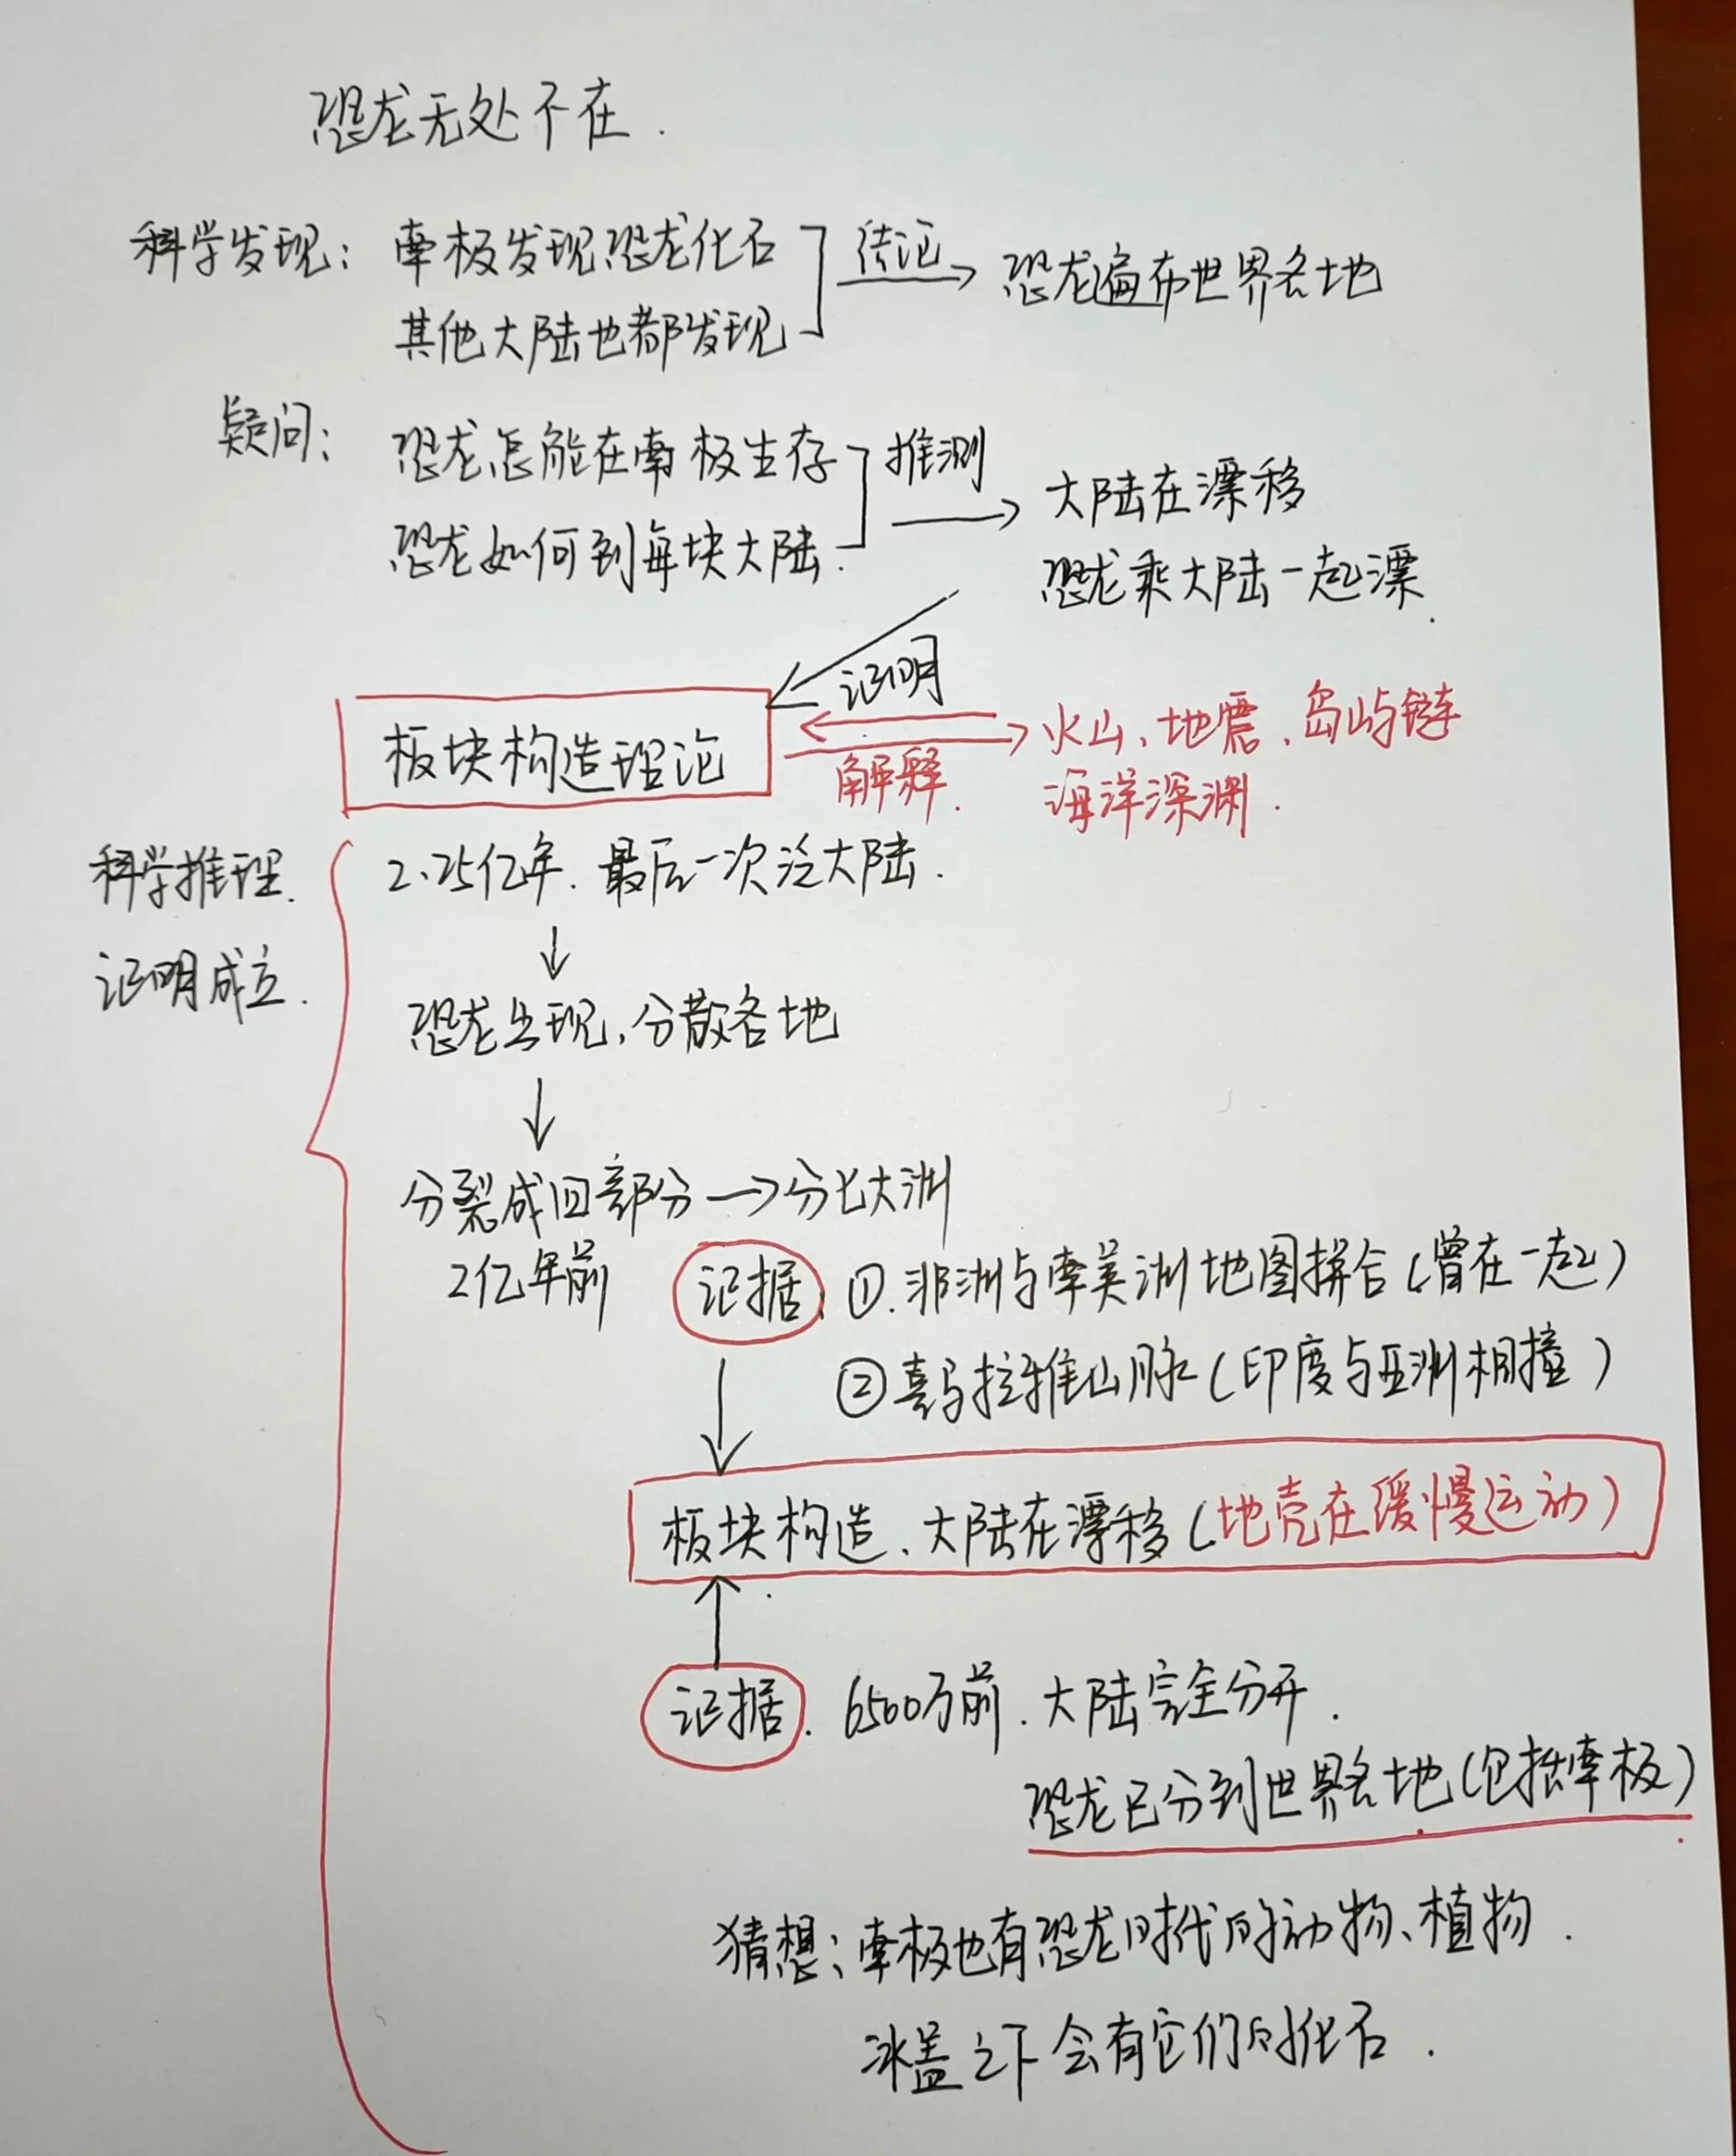 恐龙无处不在.
科学发现: 南极发现恐龙化石
其他大陆也都发现
待证
恐龙遍布世界各地
疑问: 恐龙怎能在南极生存
恐龙如何到每块大陆.
推测
大陆在漂移
恐龙乘大陆一起漂.
板块构造理论
证明
解释.
火山、地震、岛屿链
海洋深渊.
科学推理.
证明成立.
2.25亿年. 最后一次泛大陆.
恐龙出现,分散各地
分裂成四部分→分七大洲
2亿年前
证据: ①.非洲与南美洲地图拼合(曾在一起)
②喜马拉雅山脉(印度与亚洲相撞)
板块构造、大陆在漂移(地壳在缓慢运动)
证据. 6500万前.大陆完全分开.
恐龙已分到世界各地(包括南极)
猜想:南极也有恐龙时代的动物、植物.
冰盖之下会有它们的化石.